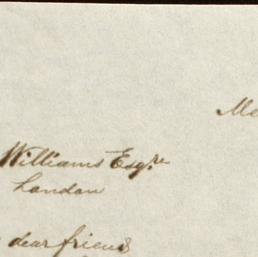 Me
Williams Esqre
London
dear friend